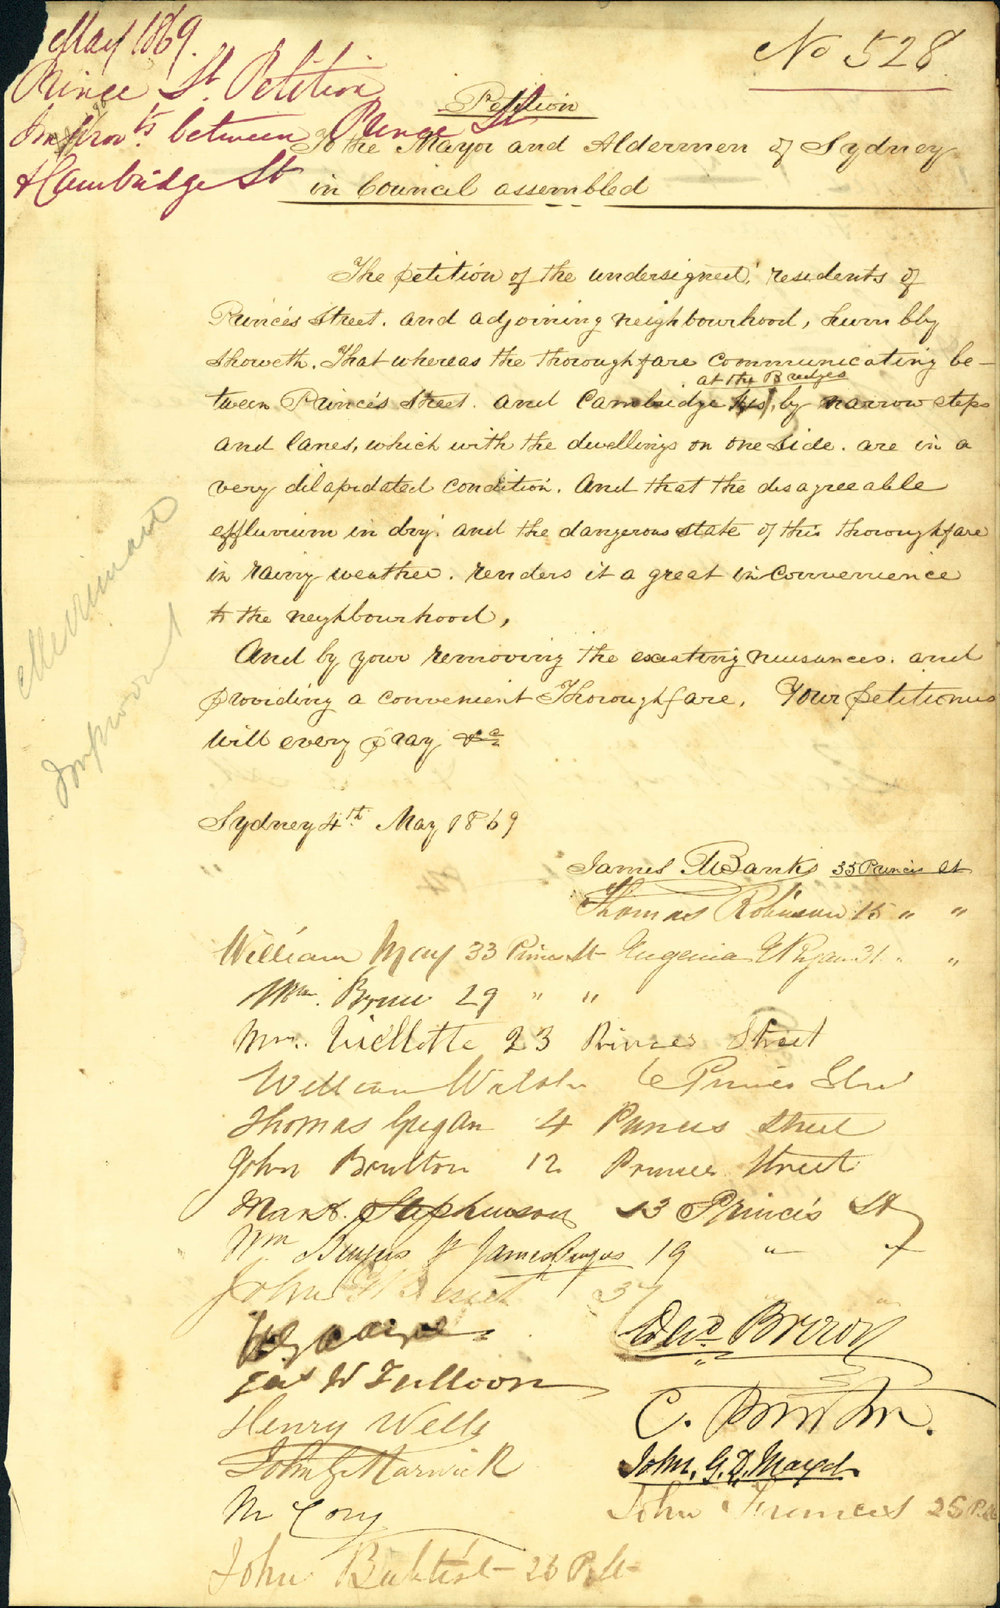 May 1869.
Prince St Petition
Improv.ts between Prince St
& Cambridge St
No 528
Petition
To the Mayor and Aldermen of Sydney
in Council assembled
The petition of the undersigned, residents of
Princes Street. and adjoining neighbourhood, humbly
Showeth. That whereas the thoroughfare communicating be-
at the Bridges
tween Princes Street. and Cambridge by narrow steps
and lanes, which with the dwellings on one side. are in a
very dilapidated condition. And that the disagreeable
effluvium in dry. and the dangerous state of this thoroughfare
in rainy weather. renders it a great inconvenience
to the neighbourhood,
And by your removing the existing nuisances. and
providing a convenient Thoroughfare. Your petitioners
will every pray &c
Improvement
Sydney 4th May 1869
James Banks 35 Princes St
Thomas Robinson 15 " "
William May 33 Princes St Eugenia Ryan 31 " "
Wm. 29 " "
Mrs. 23 Princes Street
William Walsh 6 Princes Street
Thomas Gregan 4 Princes Street
John Boulton 12 Princes Street
Mark. Stephenson 13 Princes St
Wm Burgess & James Burgess 19 " "
John 37 "
W Fulloon
Henry Wells
John G Marwick
M Cory
John Baptist 26 P. St
Edwd
C.
John. G. D. Mayd
John Francis 25